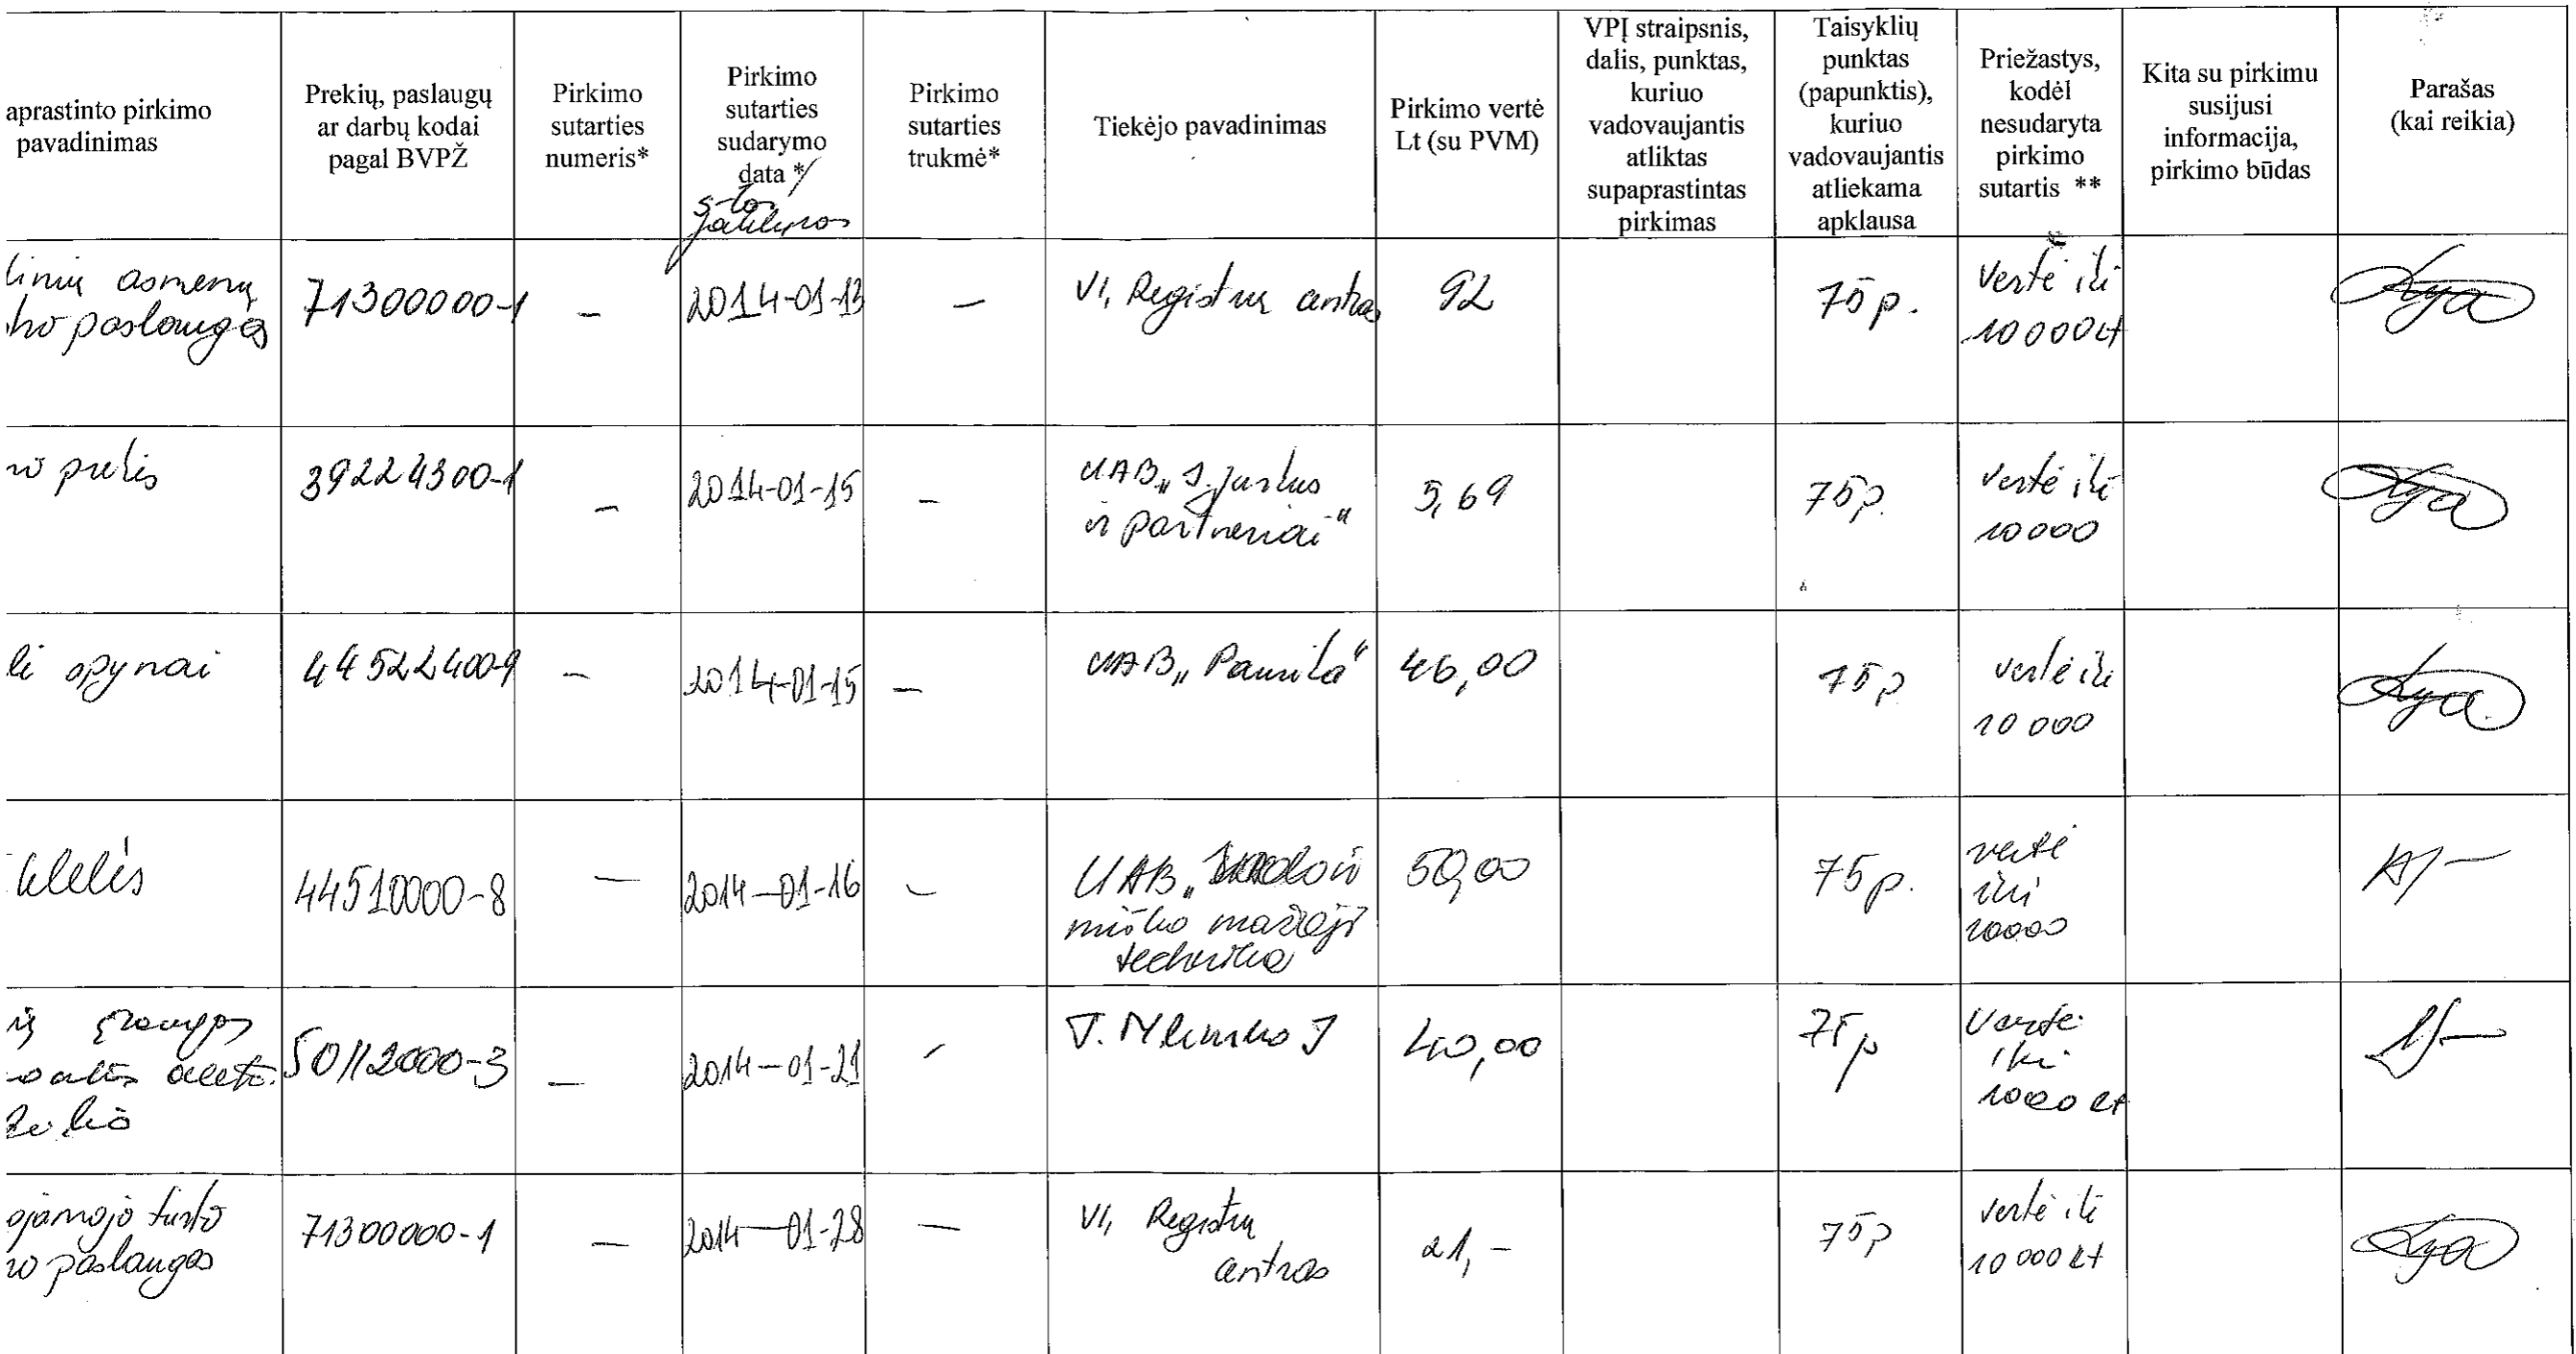 aprastinto pirkimo
pavadinimas
Prekių, paslaugų
ar darbų kodai
pagal BVPŽ
Pirkimo
sutarties
numeris*
Pirkimo
sutarties
sudarymo
data */
Pirkimo
sutarties
trukmė*
Tiekėjo pavadinimas
Pirkimo vertė
Lt (su PVM)
VPĮ straipsnis,
dalis, punktas,
kuriuo
vadovaujantis
atliktas
supaprastintas
pirkimas
Taisyklių
punktas
(papunktis),
kuriuo
vadovaujantis
atliekama
apklausa
Priežastys,
kodėl
nesudaryta
pirkimo
sutartis **
Kita su pirkimu
susijusi
informacija,
pirkimo būdas
Parašas
(kai reikia)
linių asmenų
ro paslaugos
71300000-1
–
2014-01-13
–
VĮ, Registrų centras
92
75 p.
Vertė iki
10 000 Lt
ro prekės
39224300-1
–
2014-01-15
–
UAB „J. Juškus
ir partneriai"
5,69
75 p.
Vertė iki
10 000
li spynai
44522400-9
–
2014-01-15
–
UAB „
46,00
75 p
vertė iki
10 000
klelės
44510000-8
–
2014-01-16
–
UAB „
miško mažoji
technika
50,00
75 p.
vertė
iki
10000
įrangos
50112000-3
–
2014-01-21
–
40,00
75 p
Vertė
iki
10000 Lt
ojamojo turto
ro paslaugos
71300000-1
–
2014-01-28
–
VĮ, Registrų
centras
21,-
75 p
vertė iki
10 000 Lt